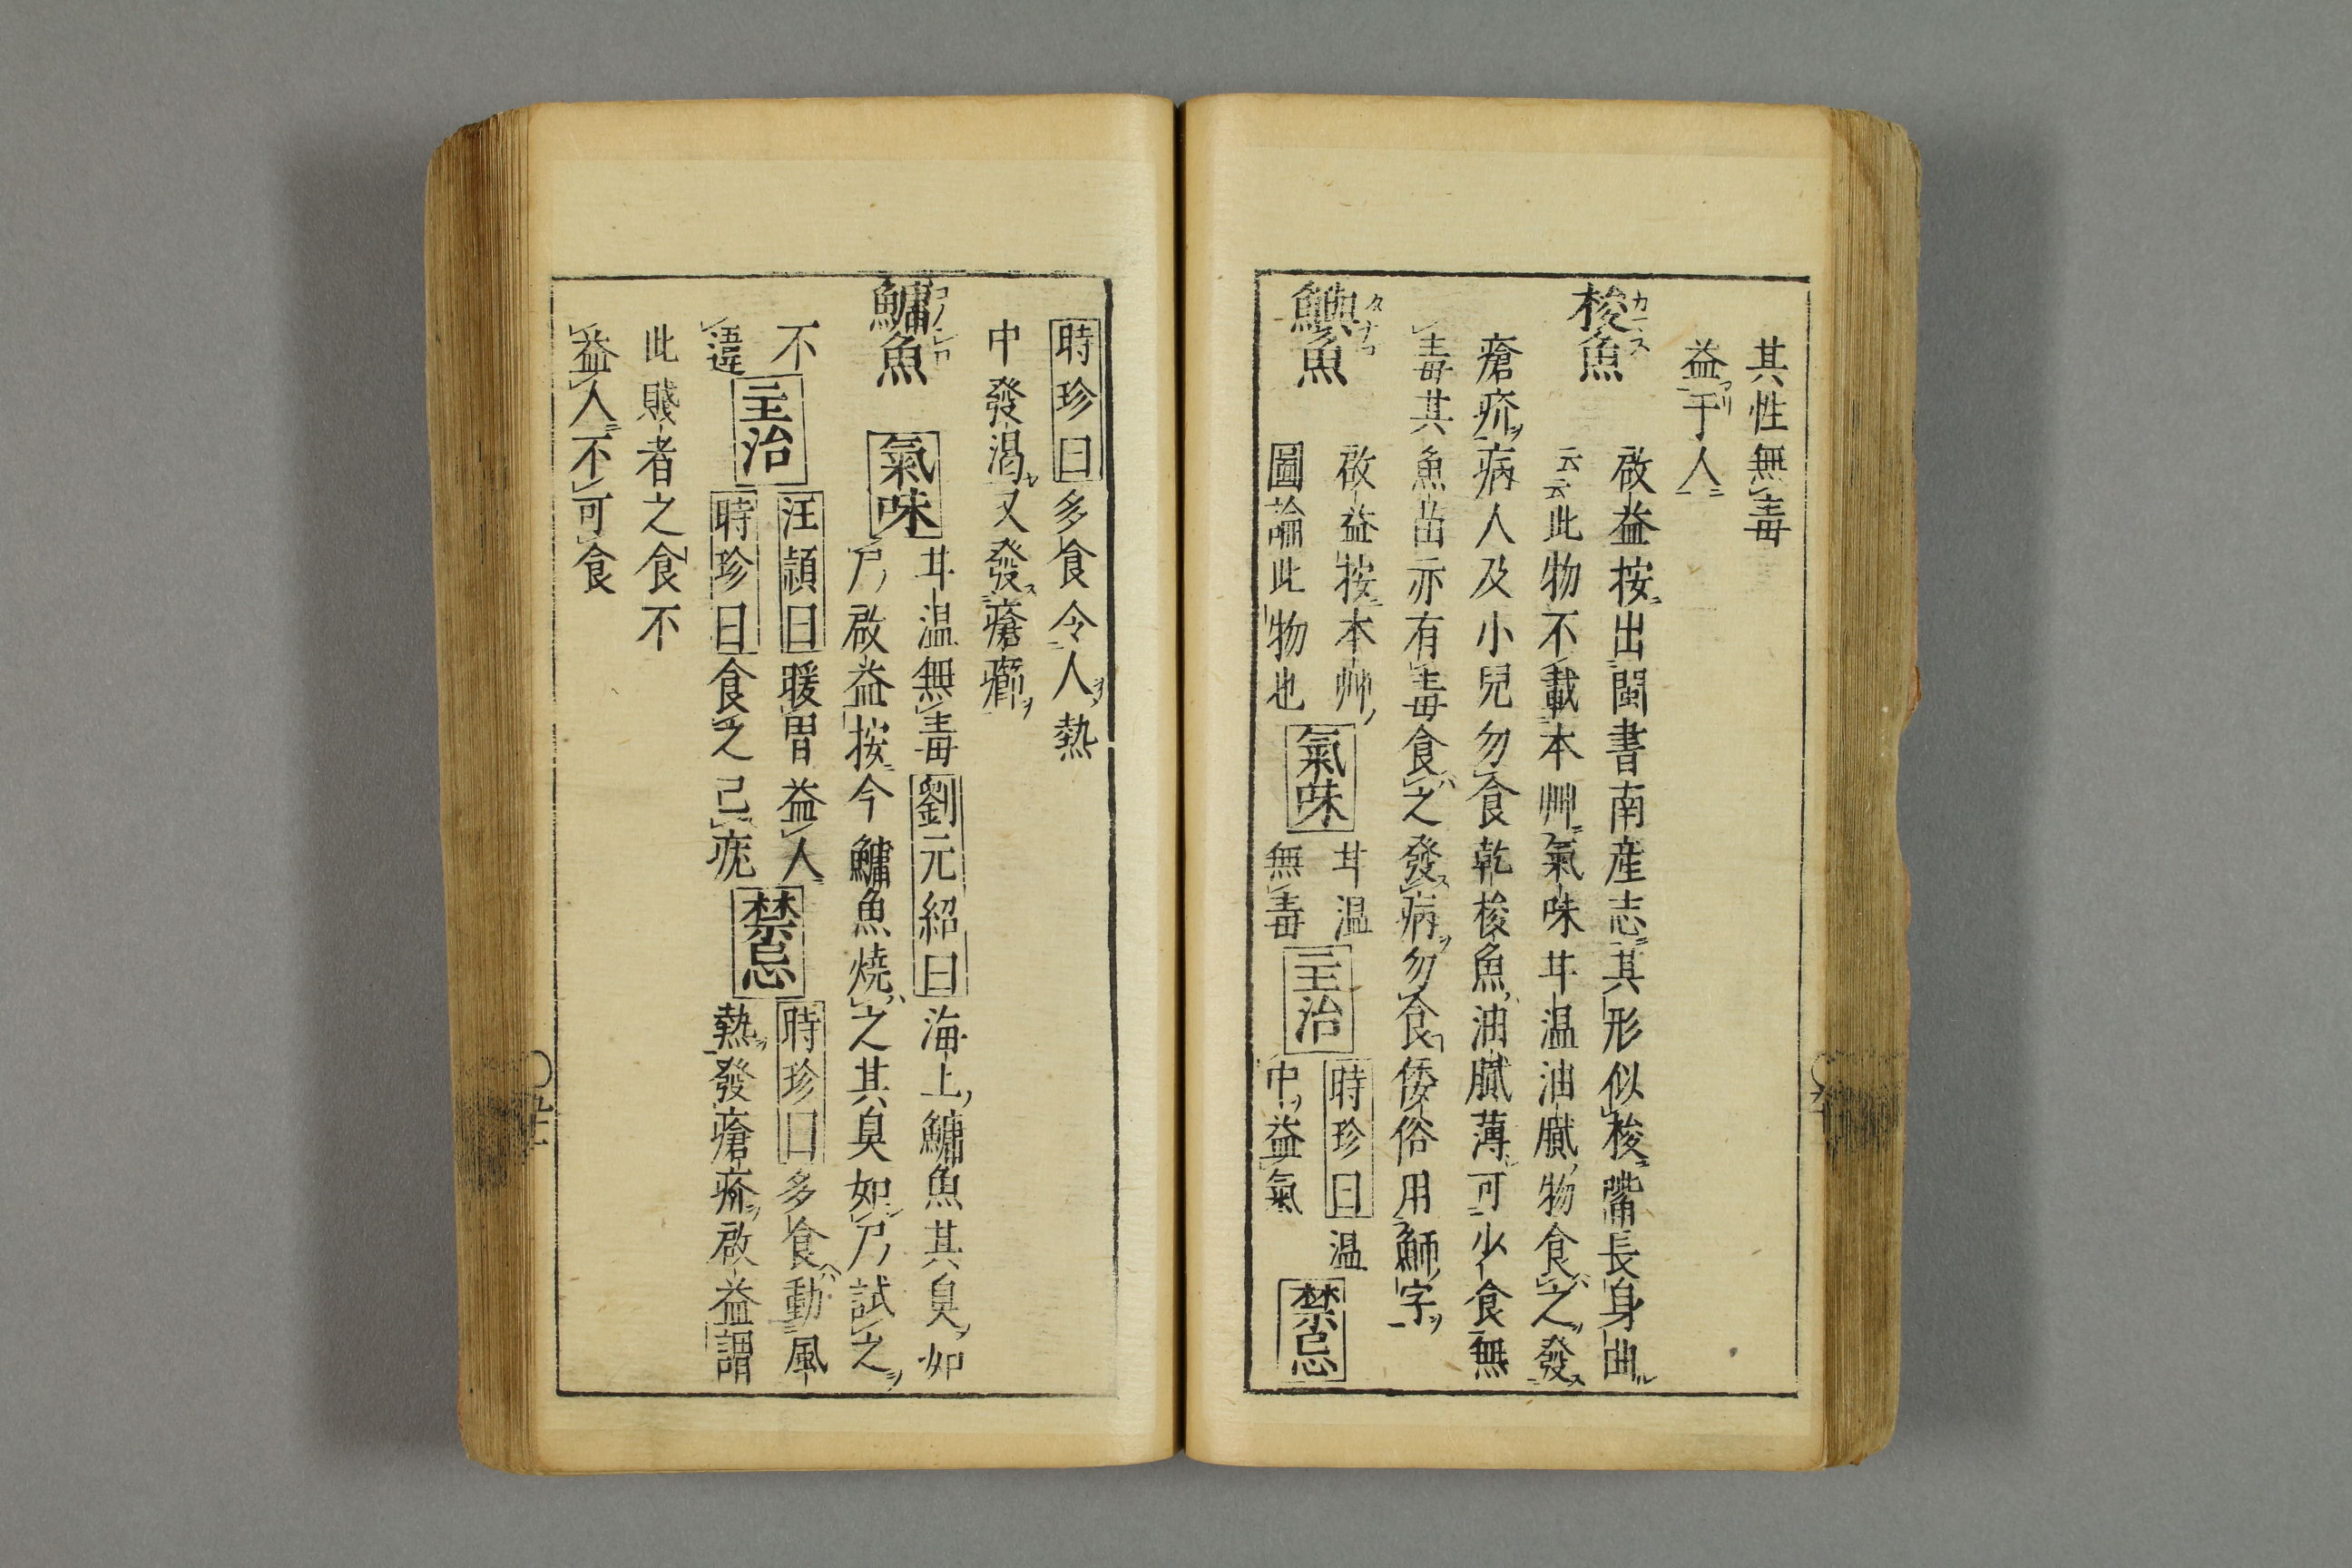 其性無毒
益于人
梭魚
啟益按出閩書南産志其形似梭嘴長身曲
云云此物不載本艸氣味甘温油膩物食之發
瘡疥病人及小兒勿食乾梭魚油膩薄可少食無
毒其魚出亦有毒食之發病勿食倭俗用鰤字
鱮魚
啟益按本艸
圖論此物也
氣味
甘温
無毒
主治
時珍曰温
中益氣
禁忌
時珍曰多食令人熱
中發渴又發瘡癬
鱅魚
氣味
甘温無毒劉元紹曰海上鱅魚其臭如
尸啟益按今鱅魚燒之其臭如尸試之
不
語違
主治
汪頴曰暖胃益人
時珍曰食之已疣
禁忌
時珍曰多食動風
熱發瘡疥啟益謂
此賤者之食不
益人不可食